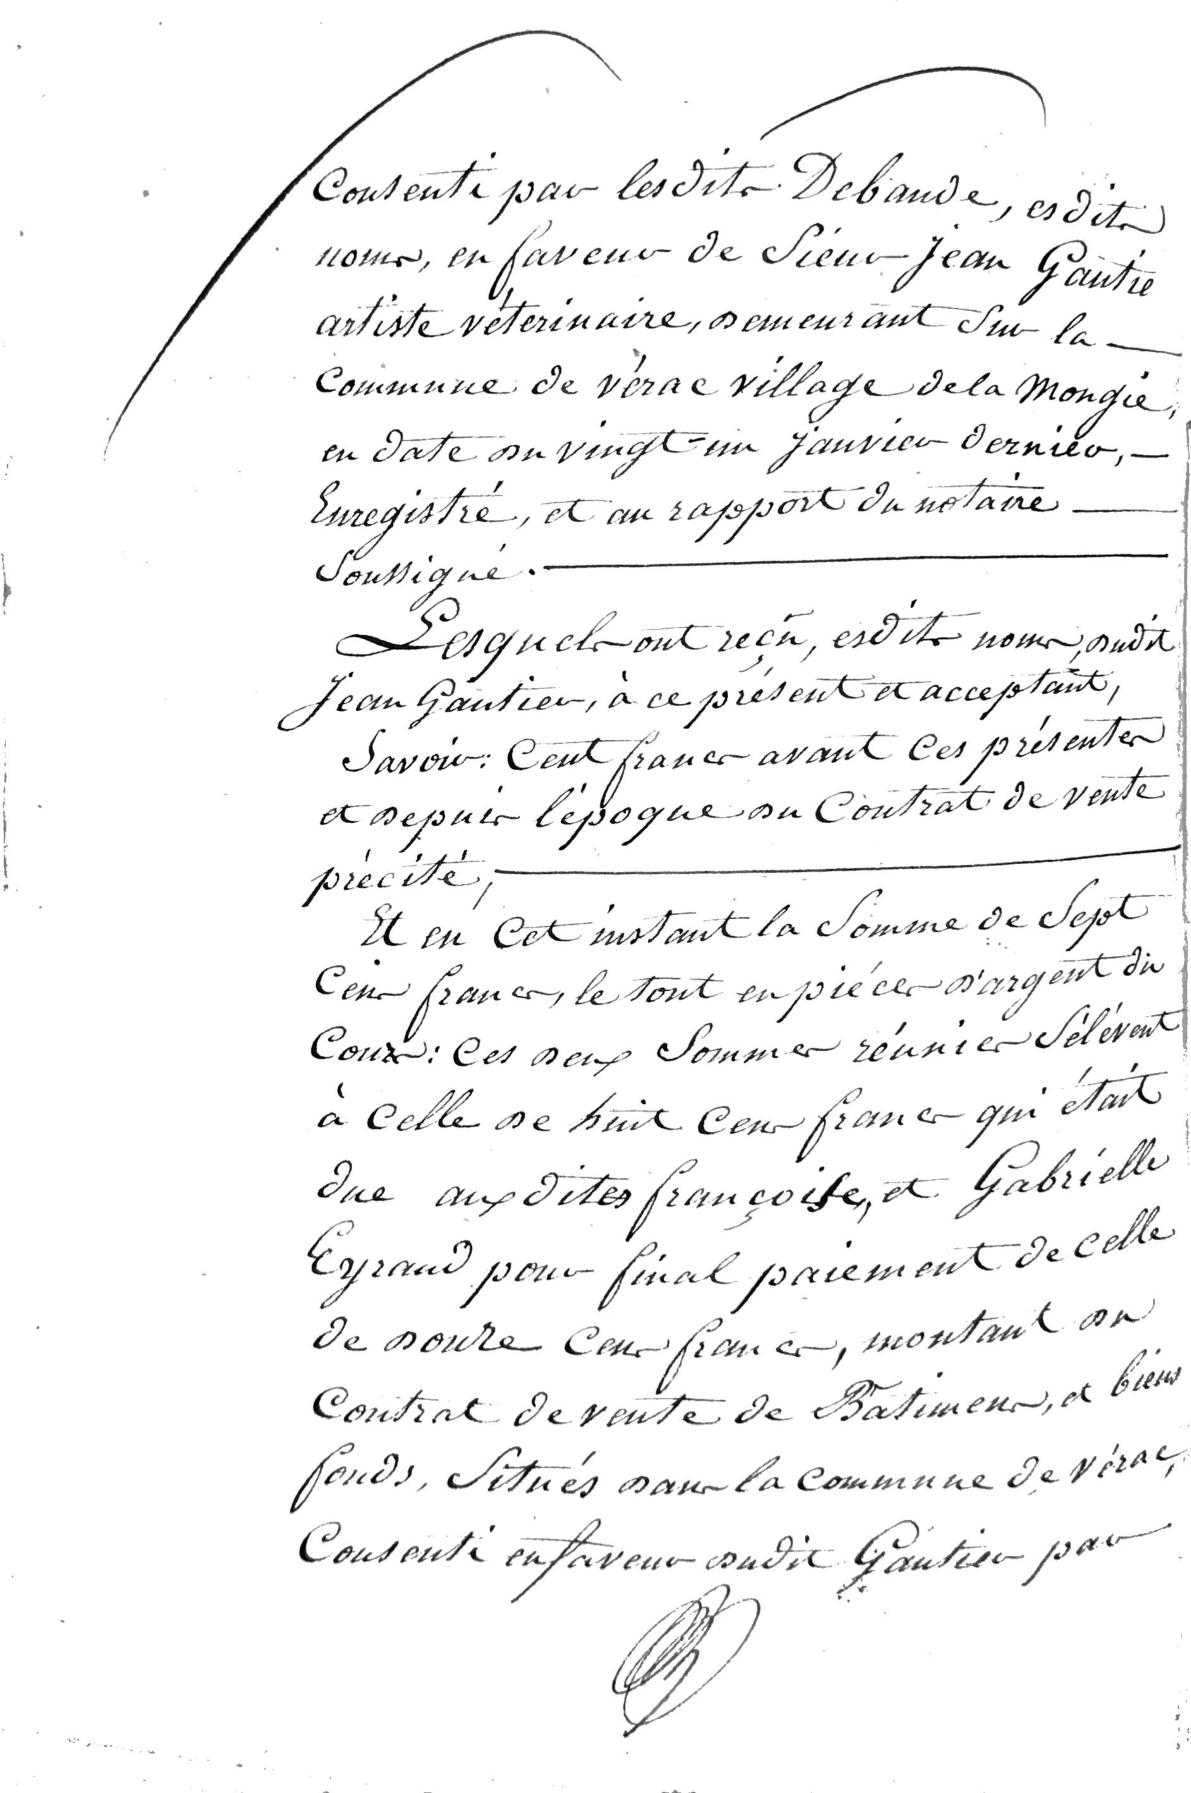 Consenti par lesdits Debande, esdits
noms, en faveur de Siéur Jean Gautie
artiste véterinaire, demeurant Sur la
Commune de vérac village de la Mongie,
en date du vingt-un janvier dernier,
Enregistré, et au rapport du notaire
Soussigné.
Lesquels ont reçu, esdits noms, dudit
Jean Gautier, à ce présent et acceptant,
Savoir: Cent francs avant Ces présentes
et depuis l'époque du Contrat de vente
précité,
Et en Cet instant la Somme de Sept
Cens francs, le tout en piéces d'argent du
Cours: Ces deux Sommes réunies S'élévent
à Celle de huit Cens francs qui était
due aux dites françoise, et Gabrielle
Eyraud pour final paiement de Celle
de douze Cens francs, montant du
Contrat de vente de Batimens, et biens
fonds, Situés dans la Commune de vérac,
Consenti en faveur dudit Gautier par